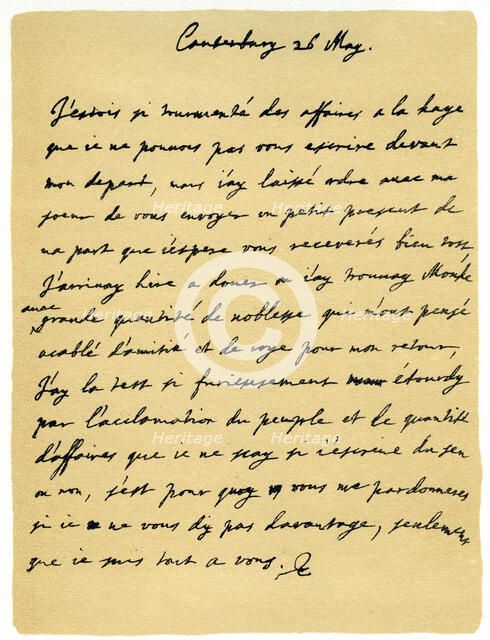 Canterbury 26 May.
J'estois si tourmenté des affaires a la haye
que ie ne pouvois pas vous escrire devant
mon depart, mais i'ay laissé ordre avec ma
soeur de vous envoyer un petit present de
ma part que i'espere vous receverés bien tost
J'arrivay hire a douer ou i'ay trouvay Monk
avec
grande quantité de noblesse qui m'ont pensé
acablé d'amitié et de joye pour mon retour,
J'ay la test si furieusement étourdy
par l'acclamation du peuple et le quantité
d'affaires que ie ne scay si i'escrive du sen
ou non, s'est pour quoy vous me pardonneres
si ie ne vous dy pas davantage, seulement
que ie suis tout a vous. C
Heritage
Heritage
Heritage
Heritage
Heritage
Heritage